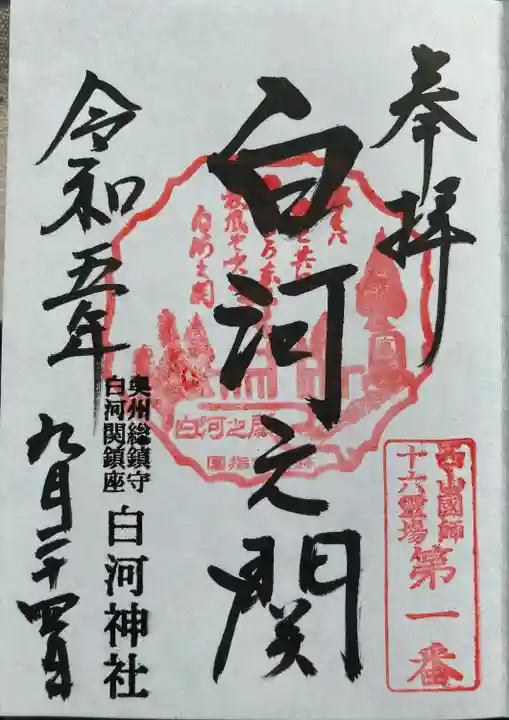 奉拝
西山國師
十六霊場
第一番
白河之関
白河之関
奥州総鎮守
白河関鎮座
白河神社
令和五年
九月二十四日